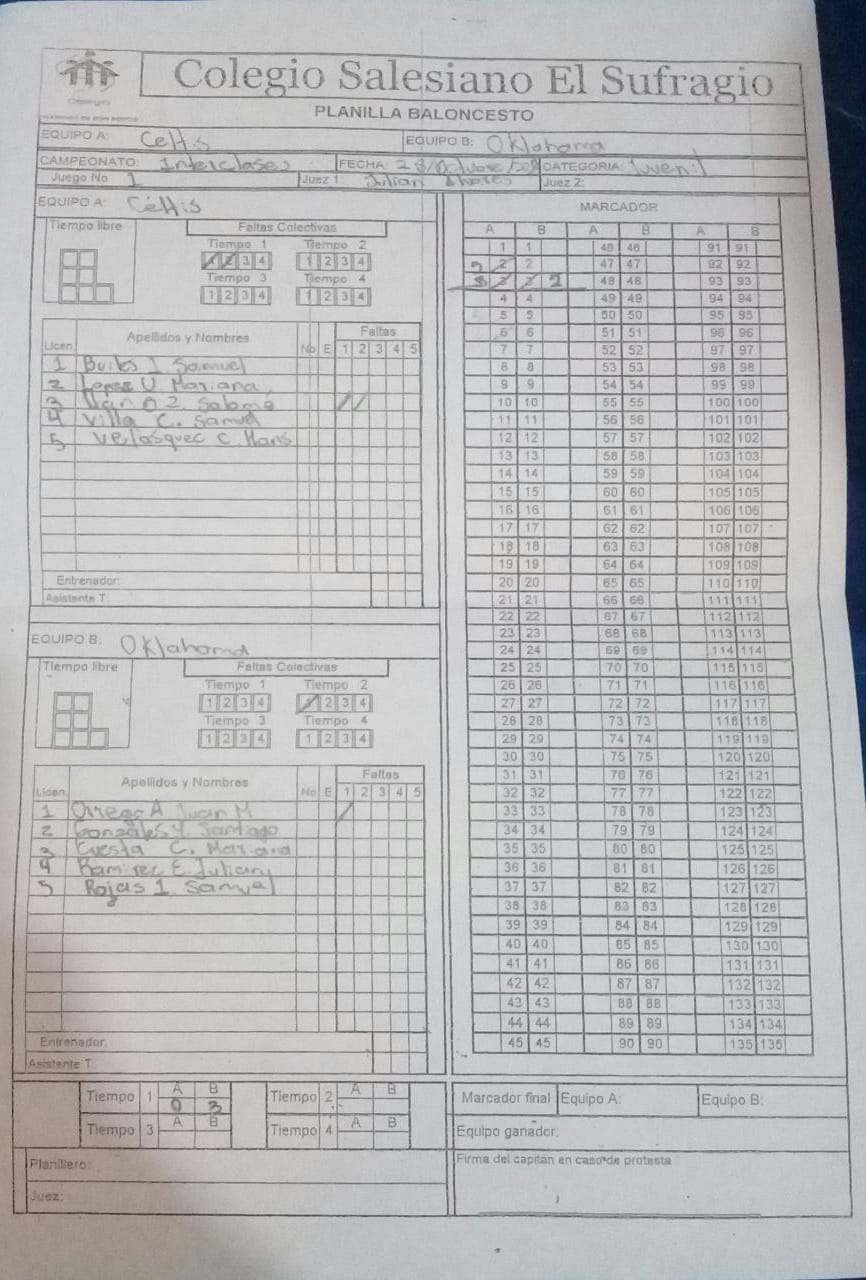 Colegio Salesiano El Sufragio
PLANILLA BALONCESTO
EQUIPO A: Celtis EQUIPO B: Oklahoma
CAMPEONATO: Interclases FECHA: 28/Octubre CATEGORIA: Juvenil
Juego No 1 Juez 1: Julian Juez 2:
EQUIPO A: Celtis
Tiempo libre Faltas Colectivas
Tiempo 1 Tiempo 2
1 2 3 4 1 2 3 4
Tiempo 3 Tiempo 4
1 2 3 4 1 2 3 4
Licen. Apellidos y Nombres No E Faltas
1 2 3 4 5
1 Builes J. Samuel
2 Lopez U. Mariana
3 Z. Salomé
4 Villa C. Samuel
5 Velasquec C. Hans
Entrenador:
Asistente T.
EQUIPO B: Oklahoma
Tiempo libre Faltas Colectivas
Tiempo 1 Tiempo 2
1 2 3 4 1 2 3 4
Tiempo 3 Tiempo 4
1 2 3 4 1 2 3 4
Licen. Apellidos y Nombres No E Faltas
1 2 3 4 5
1 Orrego A Juan M
2 Gonzales Y. Santiago
3 Cuesta C. Mariana
4 Ramirez E. Julian
5 Rojas I. Samuel
Entrenador:
Asistente T.
MARCADOR
A B A B A B
1 1 46 46 91 91
2 2 47 47 92 92
3 3 3 2 48 48 93 93
4 4 49 49 94 94
5 5 50 50 95 95
6 6 51 51 96 96
7 7 52 52 97 97
8 8 53 53 98 98
9 9 54 54 99 99
10 10 55 55 100 100
11 11 56 56 101 101
12 12 57 57 102 102
13 13 58 58 103 103
14 14 59 59 104 104
15 15 60 60 105 105
16 16 61 61 106 106
17 17 62 62 107 107
18 18 63 63 108 108
19 19 64 64 109 109
20 20 65 65 110 110
21 21 66 66 111 111
22 22 67 67 112 112
23 23 68 68 113 113
24 24 69 69 114 114
25 25 70 70 115 115
26 26 71 71 116 116
27 27 72 72 117 117
28 28 73 73 118 118
29 29 74 74 119 119
30 30 75 75 120 120
31 31 76 76 121 121
32 32 77 77 122 122
33 33 78 78 123 123
34 34 79 79 124 124
35 35 80 80 125 125
36 36 81 81 126 126
37 37 82 82 127 127
38 38 83 83 128 128
39 39 84 84 129 129
40 40 85 85 130 130
41 41 86 86 131 131
42 42 87 87 132 132
43 43 88 88 133 133
44 44 89 89 134 134
45 45 90 90 135 135
Tiempo 1 A B Tiempo 2 A B
0 3
Tiempo 3 A B Tiempo 4 A B
Marcador final Equipo A: Equipo B:
Equipo ganador:
Planillero:
Juez:
Firma del capitán en caso de protesta